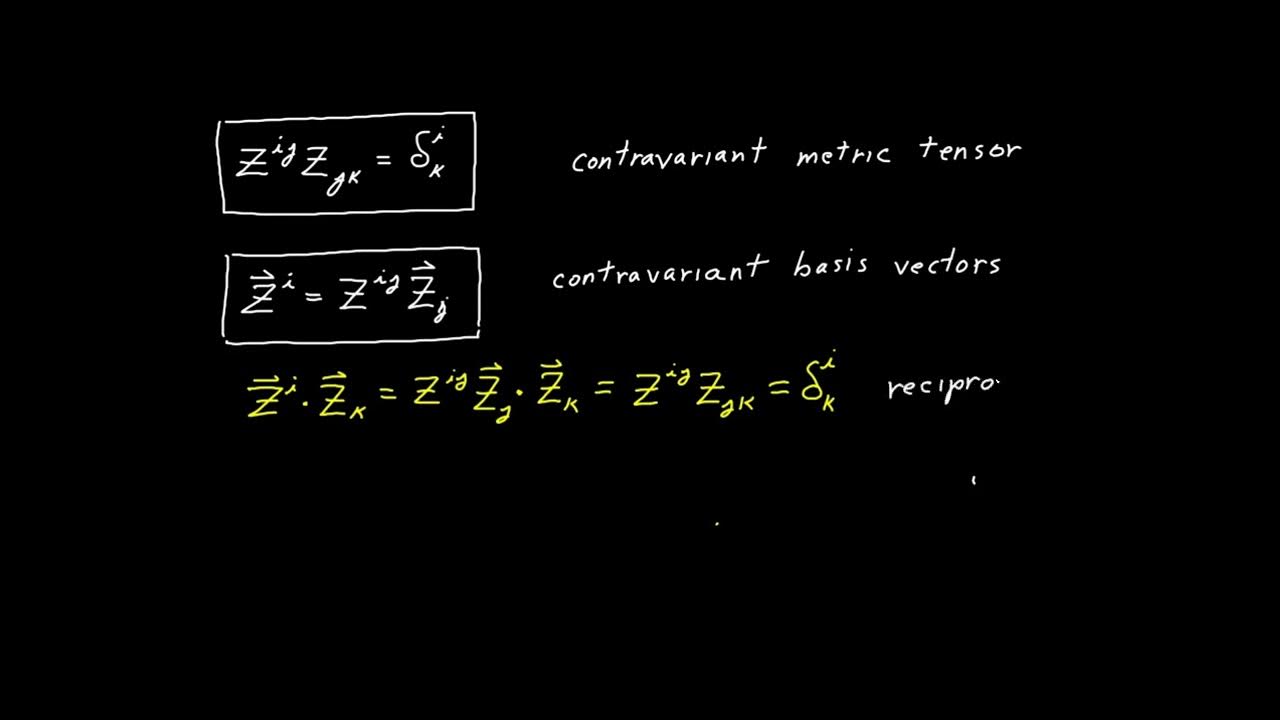 Z^{ij} Z_{jk} = δ^i_k contravariant metric tensor
\vec{Z}^i = Z^{ij} \vec{Z}_j contravariant basis vectors
\vec{Z}^i · \vec{Z}_k = Z^{ij} \vec{Z}_j · \vec{Z}_k = Z^{ij} Z_{jk} = δ^i_k recipro